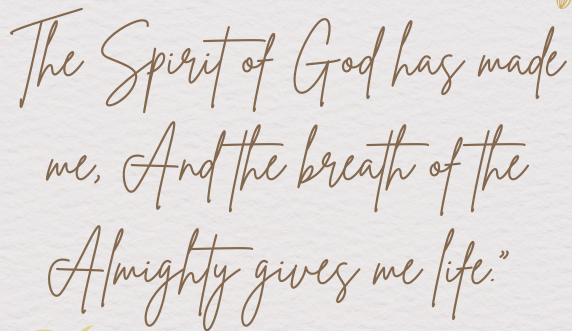 The Spirit of God has made
me, And the breath of the
Almighty gives me life.”